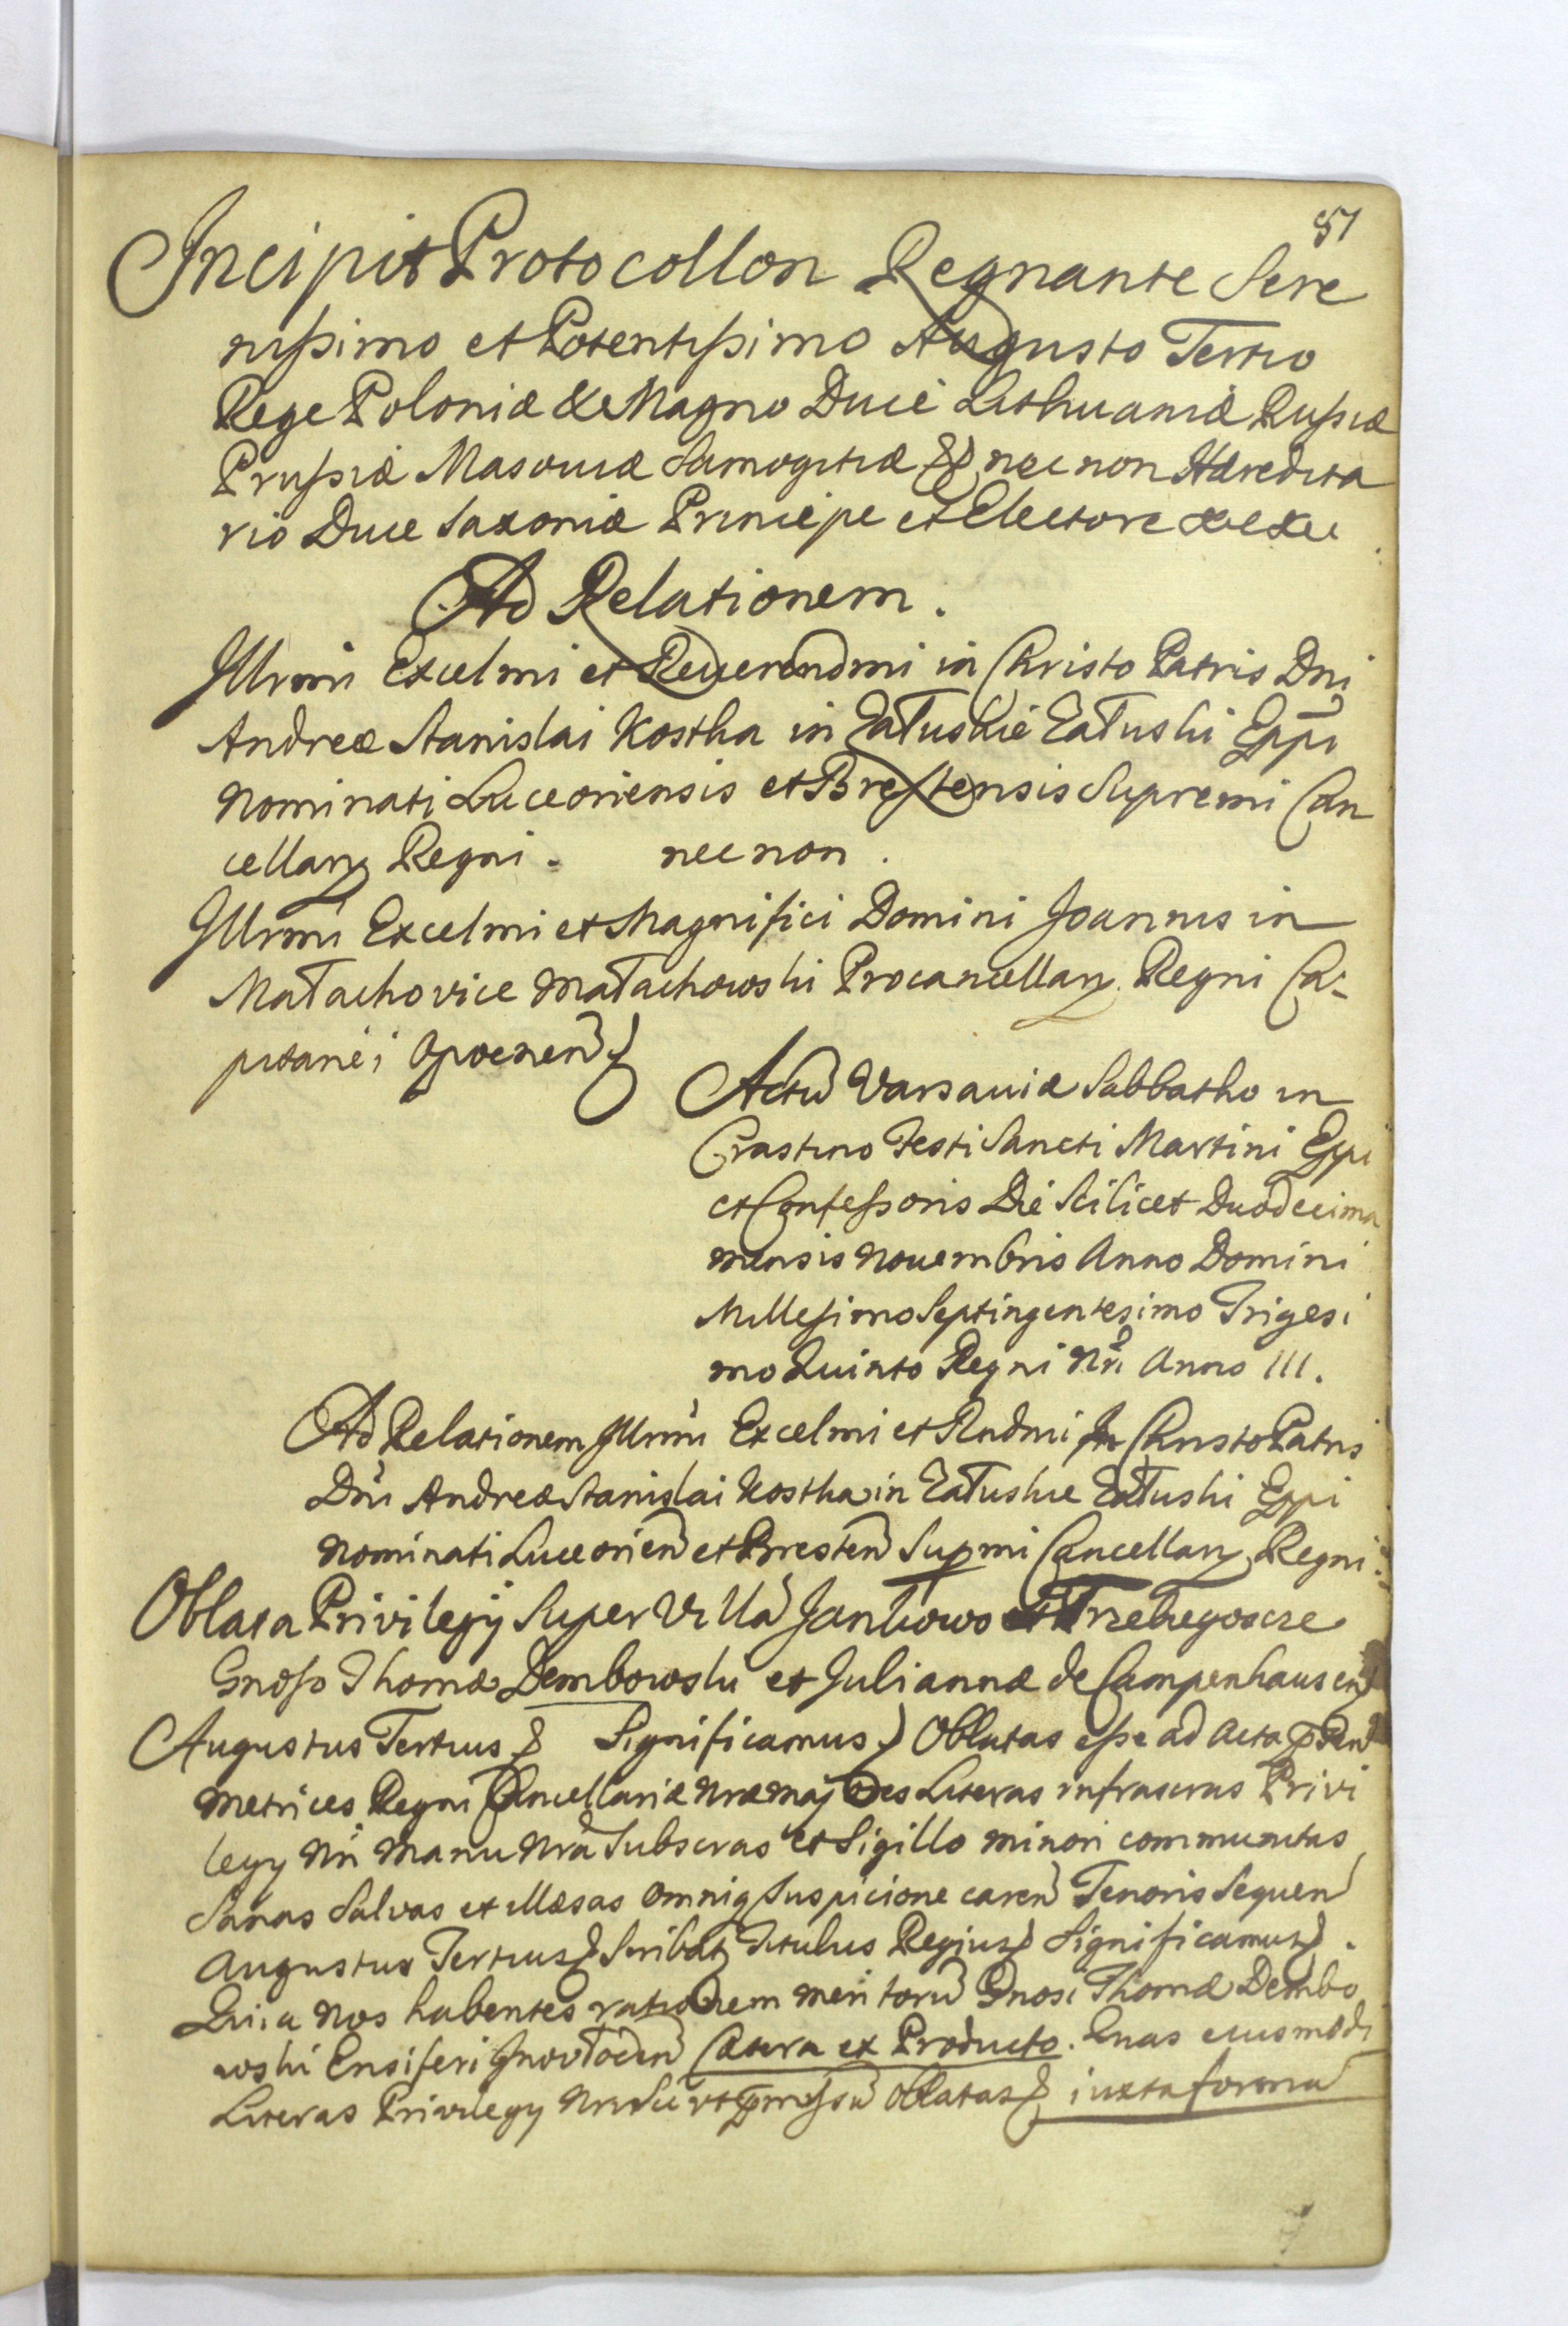 51
Incipit Protocollon Regnante Sere
nissimo et Potentissimo Augusto Tertio
Rege Poloniæ &c Magno Duce Lithuaniæ Russiæ
Prussiæ Masoviæ Samogitiæ && nec non Hæredita
rio Duce Saxoniæ Principe et Electore &c &c
Ad Relationem.
Illrmi Excelmi et Reuerendmi in Christo Patris Dni
Andreæ Stanislai Kostka in Załuskie Załuski Eppi
Nominati Luceoriensis et Brestensis Supremi Can
cellarij Regni. nec non.
Illrmi Excelmi et Magnifici Domini Joannis in
Małachovice Małachowski Procancellarij Regni Ca-
pitanei Opocznen
Actu Varsaviæ Sabbatho in
Crastino Festi Sancti Martini Eppi
et Confessoris Die Scilicet Duodecima
mensis Nouembris Anno Domini
Millesimo Septingentesimo Trigesi
mo Quinto Regni Nri Anno III.
Ad Relationem Illrmi Excelmi et Rndmi In Christo Patris
Dni Andreæ Stanislai Kostka in Załuskie Załuski Eppi
Nominati Luceorien et Bresten Supmi Cancellarij Regni.
Oblata Privilegij Super Villa Jankowo et Trzebiegoscze
Gnoso Thomæ Dembowski et Juliannæ de Campenhausen
Augustus Tertius & Significamus Oblatas esse ad Acta
Metrices Regni Cancellariæ Nræ Maj Literas infrascras Privi
legij Nri Manu Nra Subscras et Sigillo minori communitas
Sanas Salvas et illæsas omniq Suspicione caren Tenoris Sequen
Augustus Tertius & Scribat Titulus Regius Significamus.
Quia Nos habentes rationem meritoru Gnosi Thomæ Dembo
wski Ensiferi Jnowłocen Cætera ex Producto. Quas eiusmodi
Literas Privilegij oblatas & iuxta forma